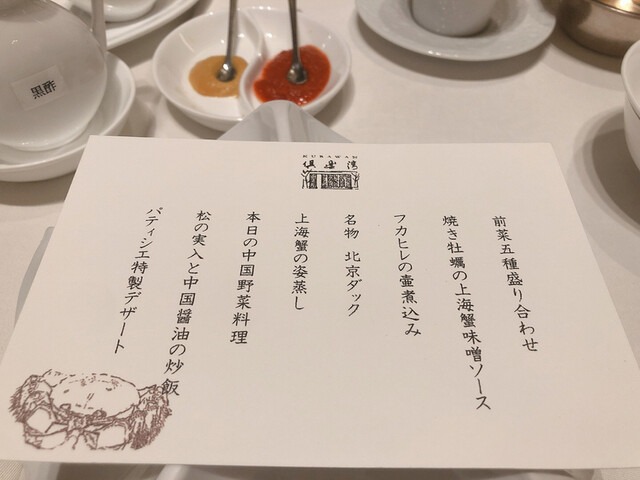 黒酢
前菜五種盛り合わせ
焼き牡蠣の上海蟹味噌ソース
フカヒレの壷煮込み
名物 北京ダック
上海蟹の姿蒸し
本日の中国野菜料理
松の実入と中国醤油の炒飯
パティシエ特製デザート